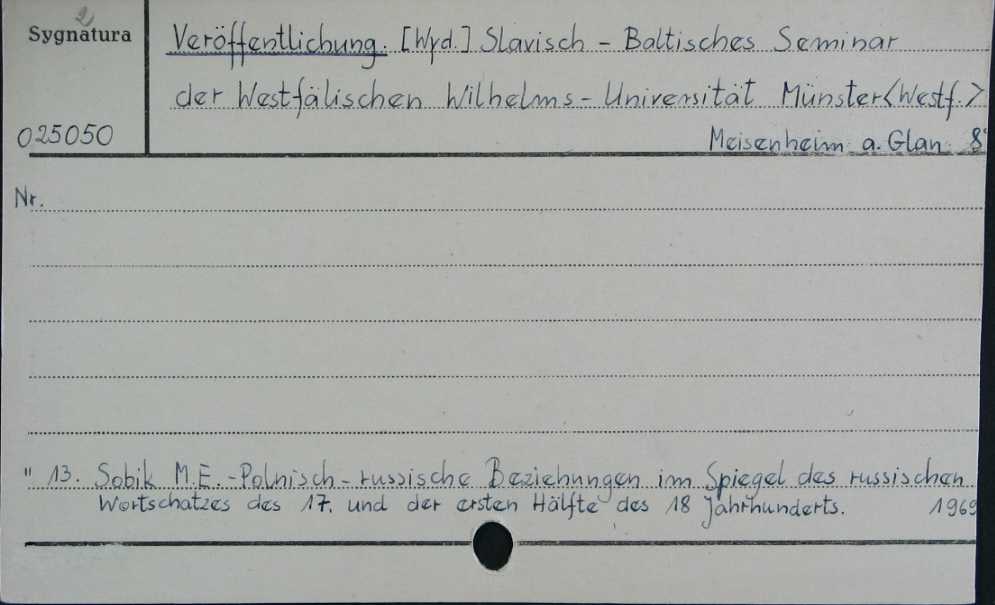 2
Sygnatura
Veröffentlichung. [Wyd.] Slavisch - Baltisches Seminar
der Westfälischen Wilhelms - Universität Münster<Westf.>
025050
Meisenheim a. Glan. 8°
Nr.
" 13. Sobik M.E. - Polnisch - russische Beziehungen im Spiegel des russischen
Wortschatzes des 17. und der ersten Hälfte des 18 Jahrhunderts. 1969